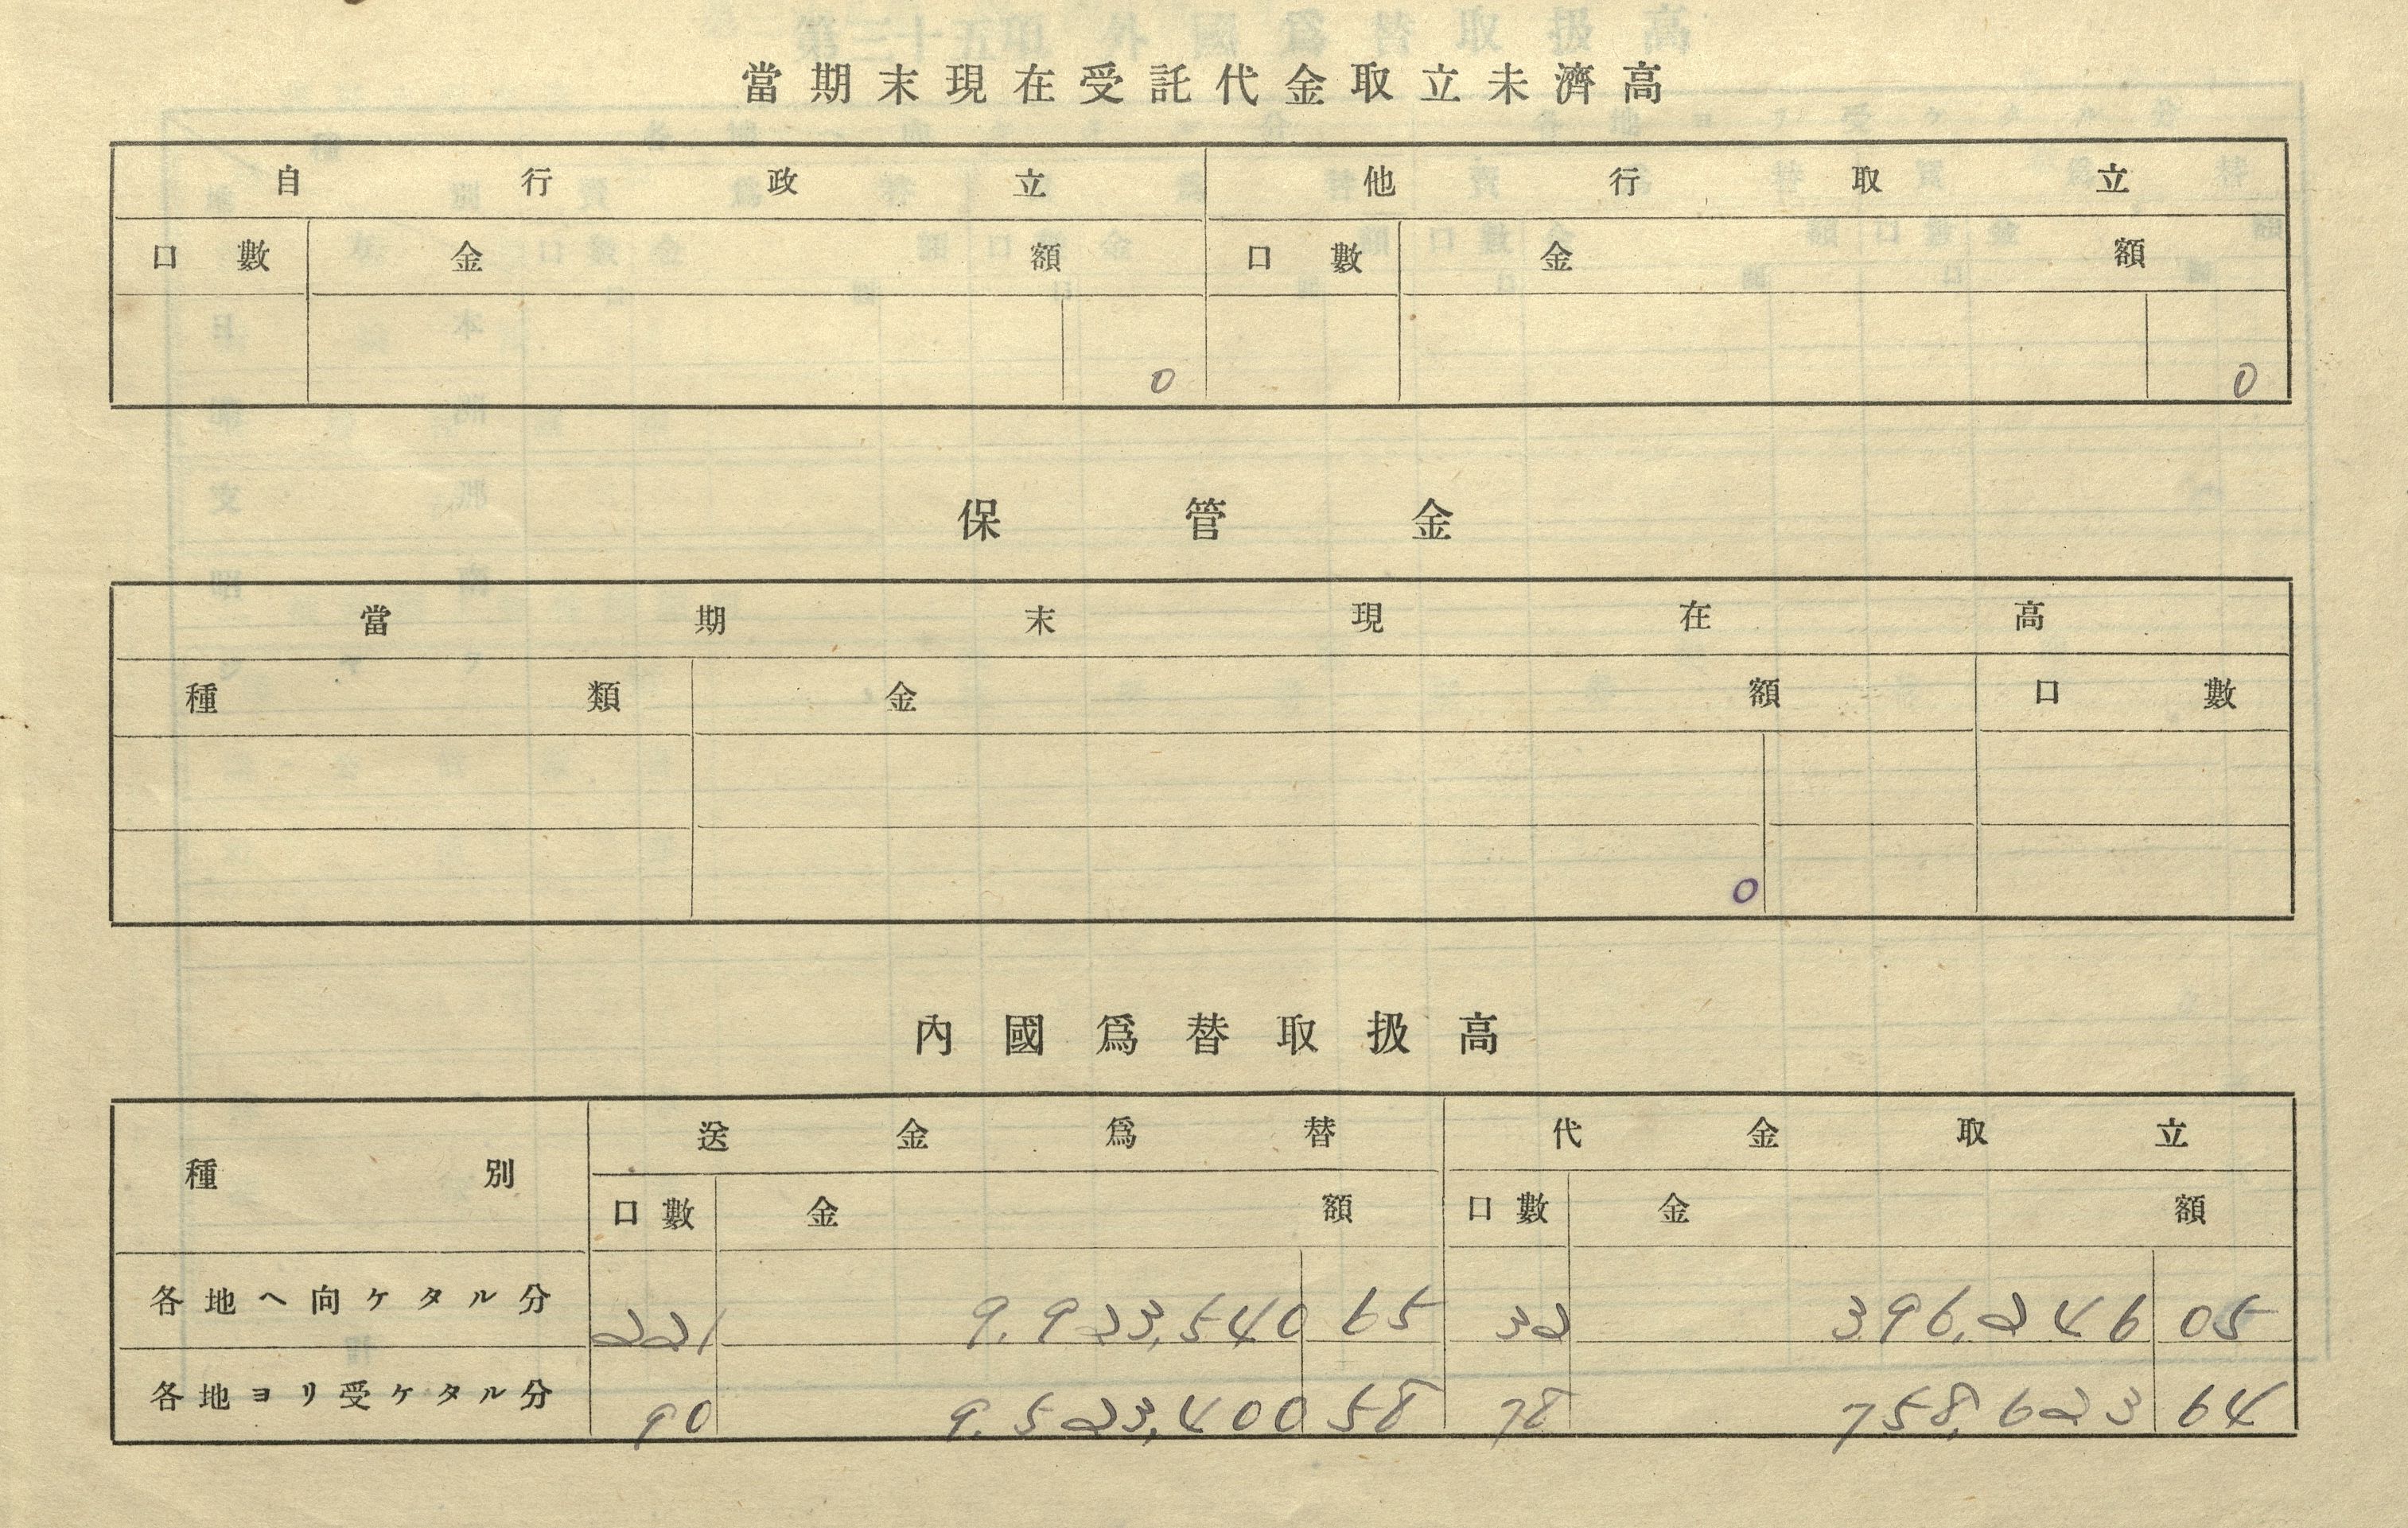 當期末現在受託代金取立未濟高
自行政立 他行取立
口數 金額 口數 金額
0 0
保管金
當期末現在高
種類 金額 口數
0
內國爲替取扱高
種別 送金爲替 代金取立
口數 金額 口數 金額
各地ヘ向ケタル分 221 9,923,540 65 32 396,246 05
各地ヨリ受ケタル分 90 9,523,400 58 78 758,623 64